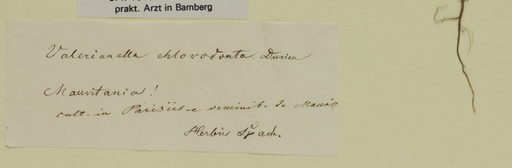 prakt. Arzt in Bamberg
Valerianella chlorodonta Durieu
Mauritania!
cult. in Parisiis e seminib. de
Herbier Spach.